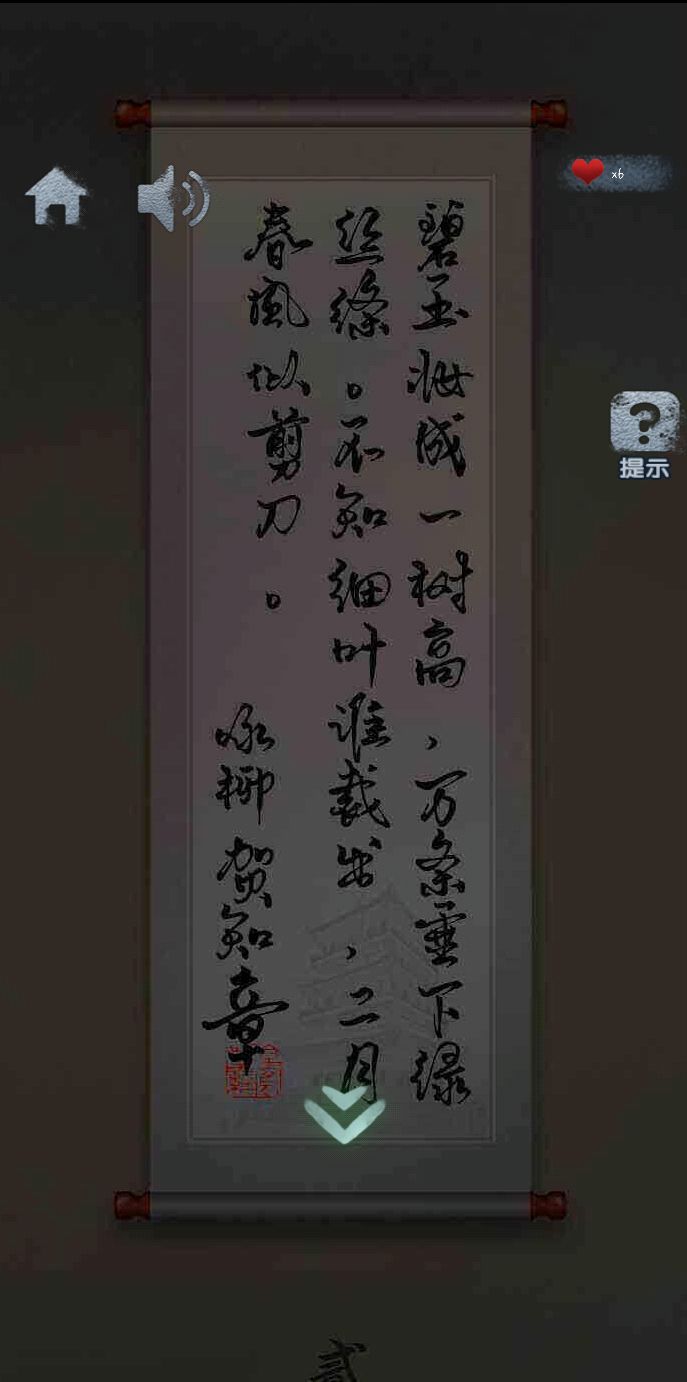 碧玉妆成一树高,万条垂下绿
丝绦。不知细叶谁裁出,二月
春風似剪刀。
咏柳贺知章
x6
提示
贰